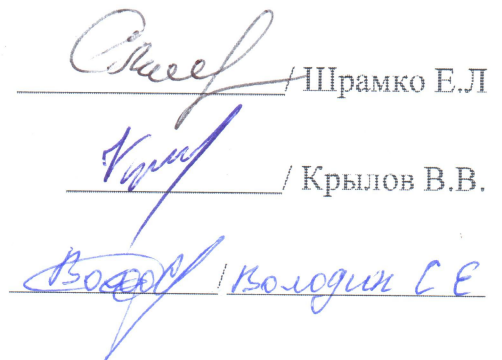 / Шрамко Е.Л
/ Крылов В.В.
/ Володин С Е